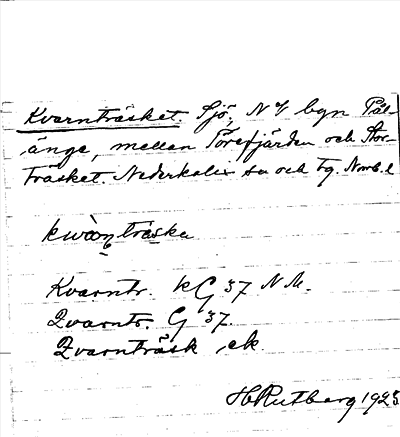 Kvarnträsket. Sjö, N of byn Pål-
änge, mellan Törefjärden och Stor-
träsket. Nederkalix sn och tg. Norrb. l
träska
Kvarntr. kG 37 N M.
Qvarntr. G 37.
Qvarnträsk, ek.
H Rutberg 1925